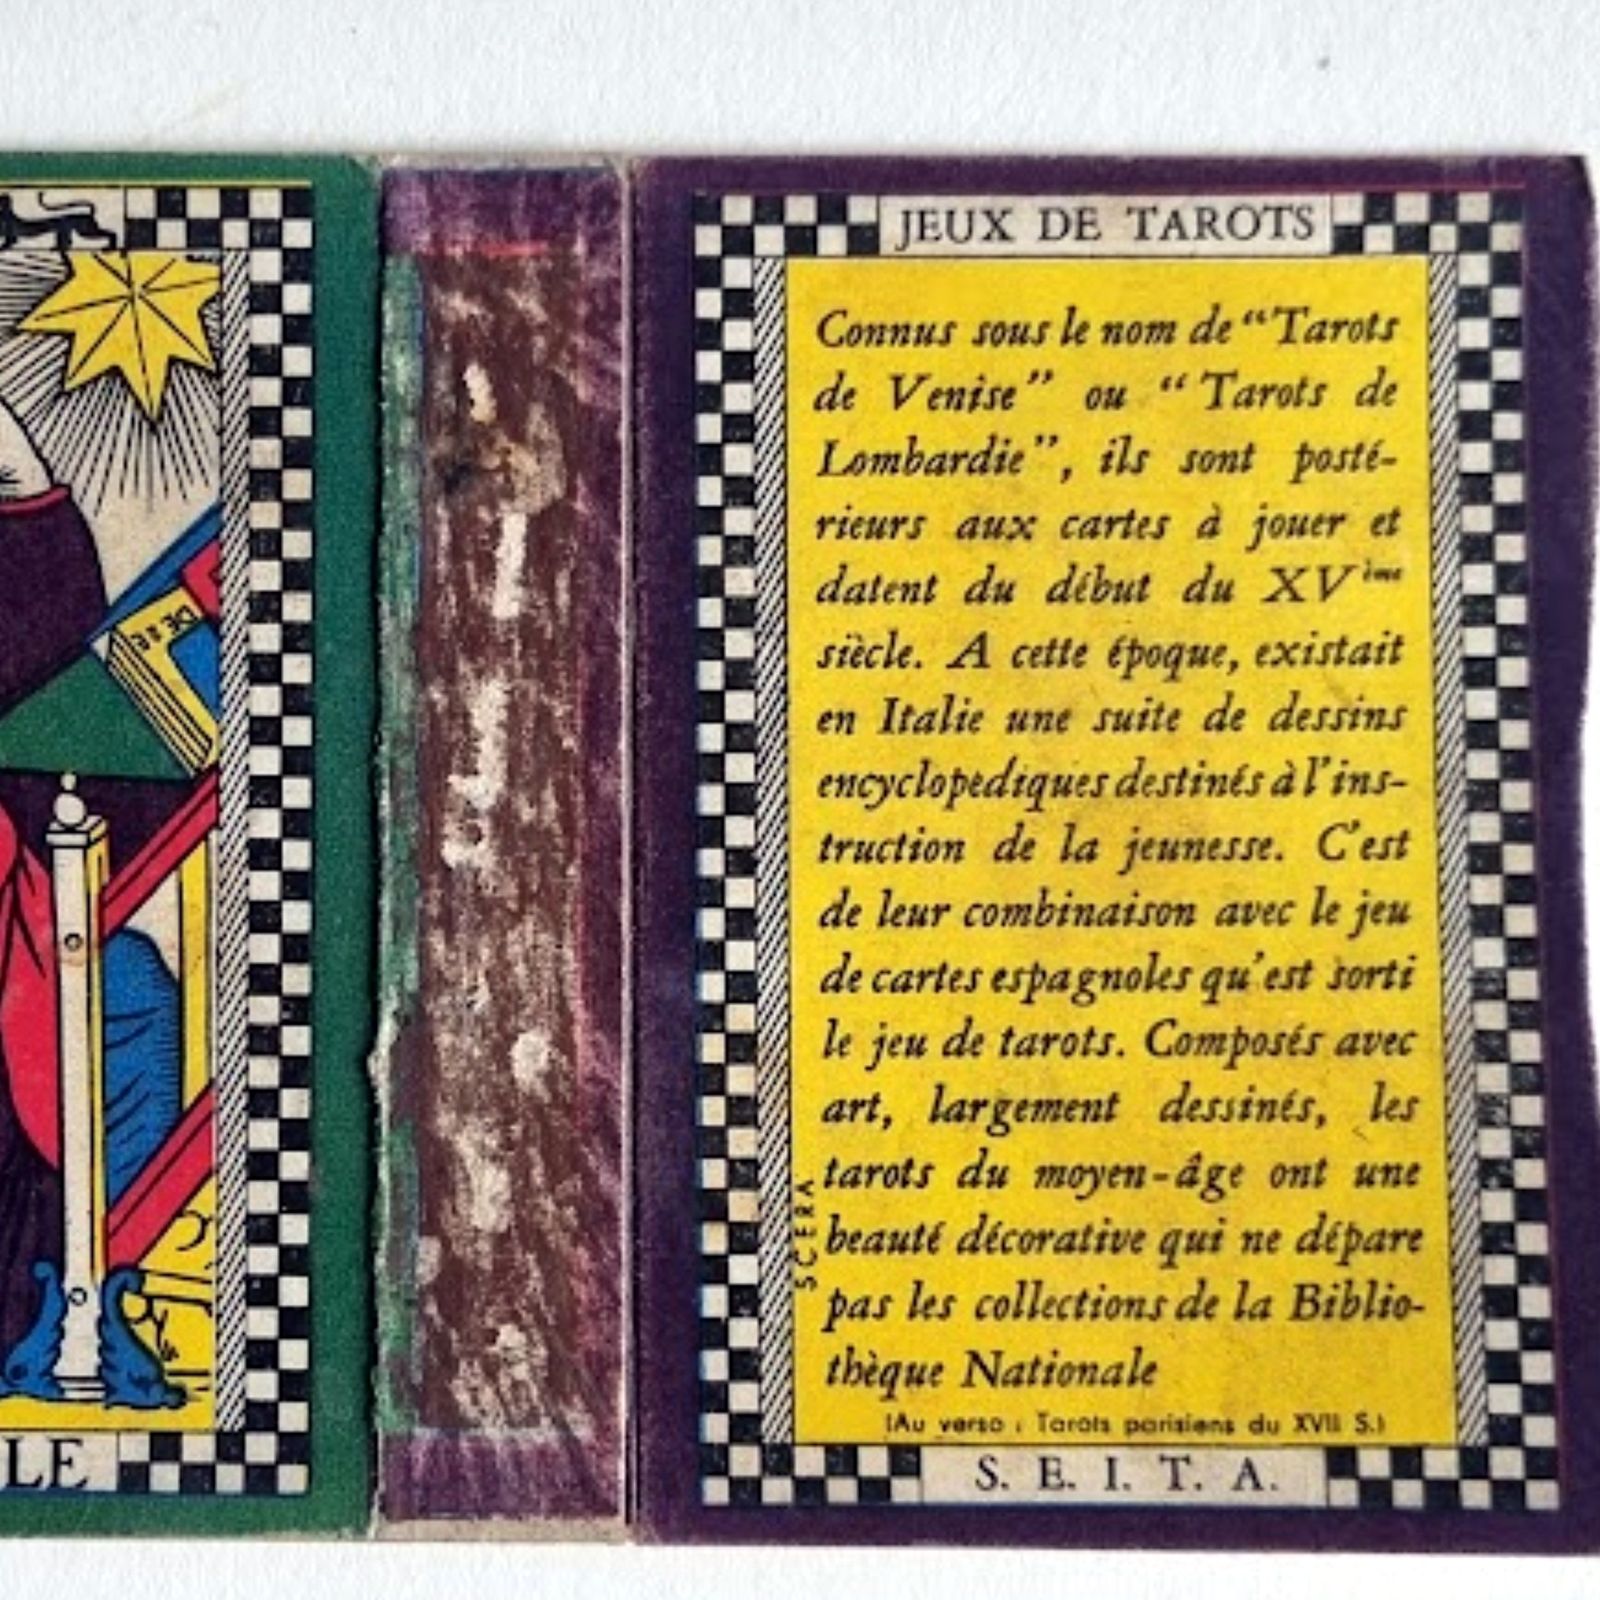 JEUX DE TAROTS
Connus sous le nom de “Tarots
de Venise” ou “Tarots de
Lombardie”, ils sont posté-
rieurs aux cartes à jouer et
datent du début du XVème
siècle. A cette époque, existait
en Italie une suite de dessins
encyclopediques destinés à l'ins-
truction de la jeunesse. C'est
de leur combinaison avec le jeu
de cartes espagnoles qu'est sorti
le jeu de tarots. Composés avec
art, largement dessinés, les
tarots du moyen-âge ont une
beauté décorative qui ne dépare
pas les collections de la Biblio-
thèque Nationale
(Au verso : Tarots parisiens du XVII S.)
S. E. I. T. A.
SCERA
LE